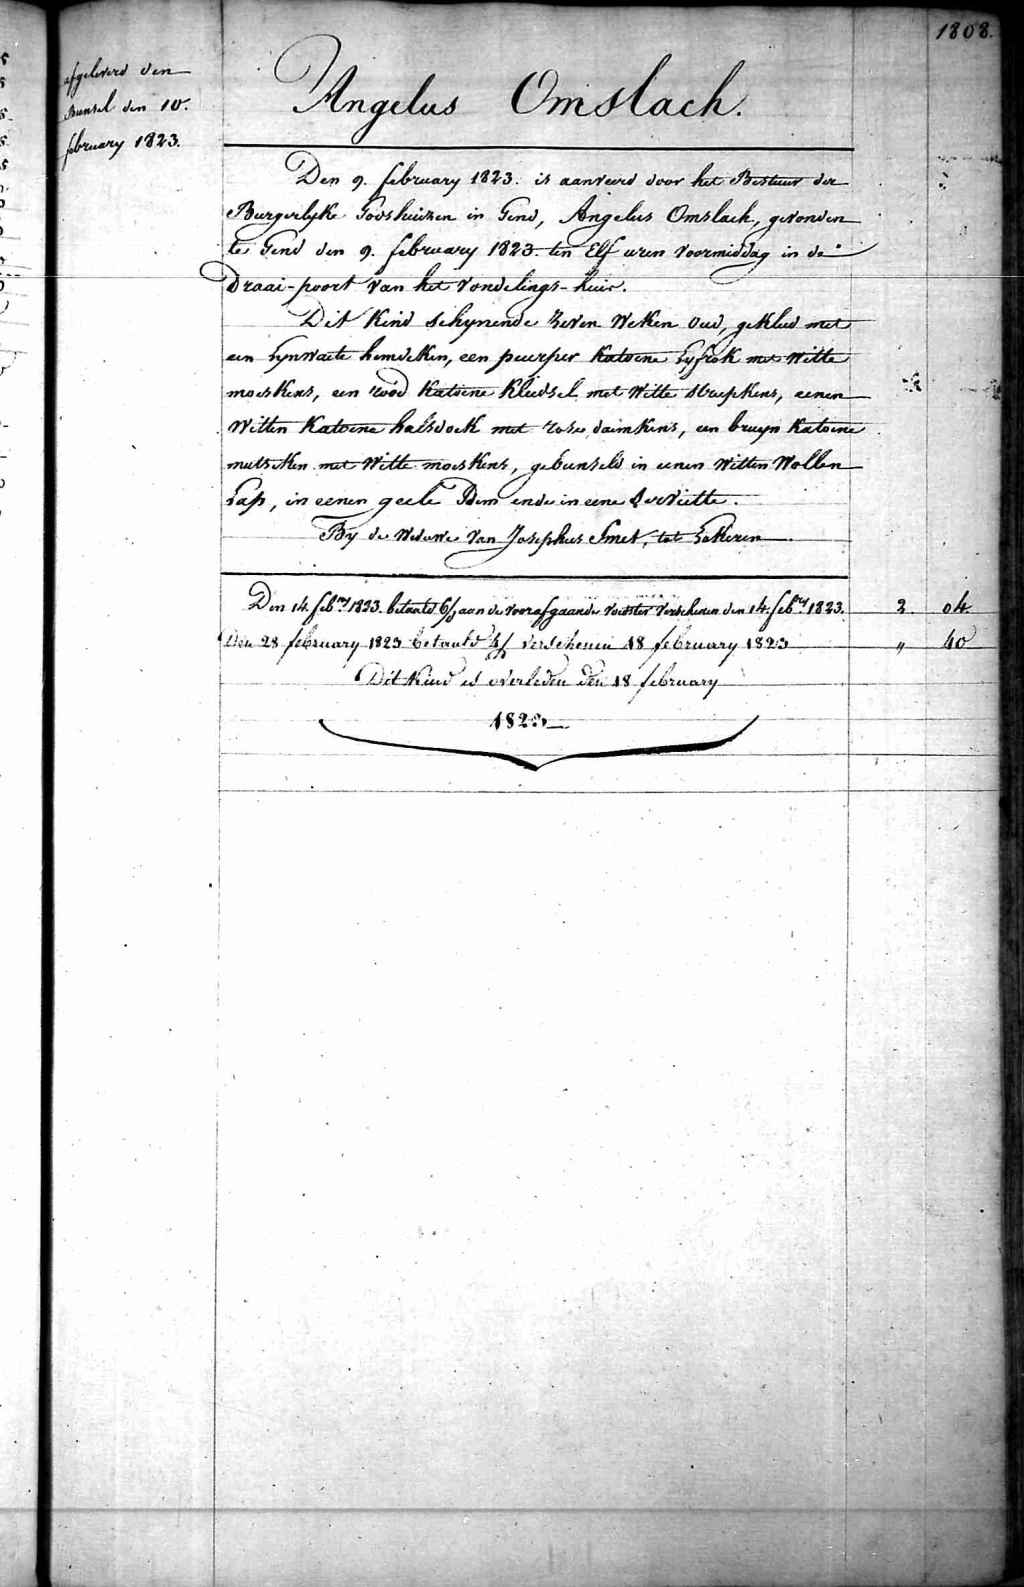 1808.
afgeleverd den
Bunsel den 10.
february 1823.
Angelus Omslach.
Den 9. february 1823. is aanveerd door het Bestuur der
Burgerlyke Godshuizen in Gend, Angelus Omslach, gevonden
te Gend den 9. february 1823. ten Elf uren voormiddag in de
Draai-poort van het vondelings-huis.
Dit Kind schynende Zeven Weken oud, gekleed met
een Lynwaete hemdeken, een peerper Katoene Lyfrok met Witte
moeskens, een rood Katoene Kleedsel met Witte streepkens, eenen
Witten Katoene halsdoek met rose daimkens, een bruyn Katoene
mutseken met Witte moeskens, gebunseld in eenen Witten Wollen
Lap, in eenen geele Dem ende in eene Serviette.
By de Weduwe Van Josephus Smet, tot Lokeren
Den 14. feb.ry 1823. betaald 6/ aan de voorafgaande voester verschenen den 14. feb.ry 1823. 2. 04
Den 28 february 1823 betaald verschenen 18 february 1823 " 40
Dit Kind is overleden den 18 february
1823